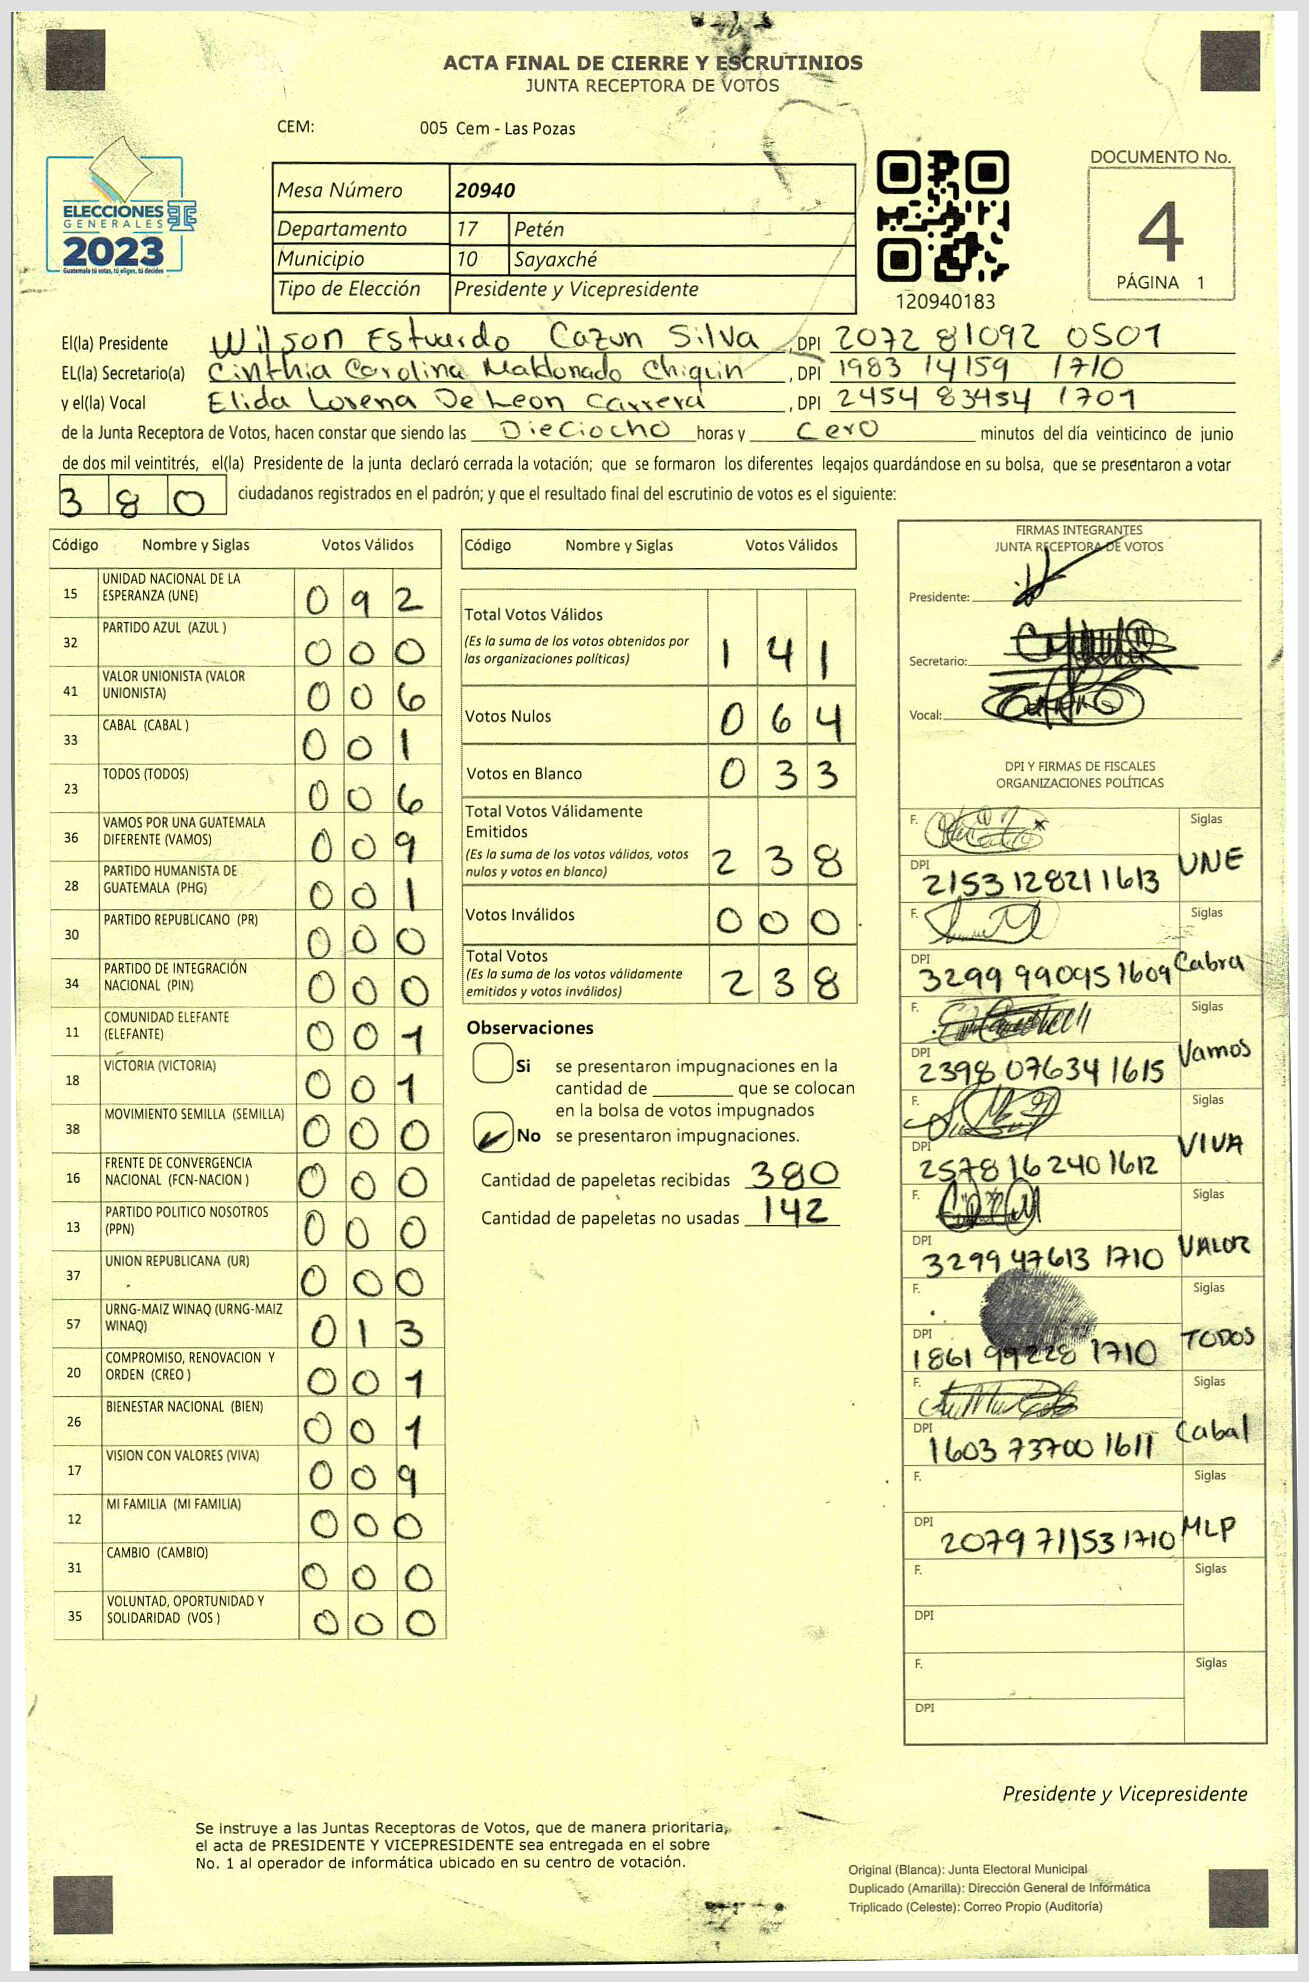 ACTA FINAL DE CIERRE Y ESCRUTINIOS
JUNTA RECEPTORA DE VOTOS
CEM: 005 Cem - Las Pozas
ELECCIONES
GENERALES
2023
Guatemala tú votas, tú eliges, tú decides
Mesa Número 20940
Departamento 17 Petén
Municipio 10 Sayaxché
Tipo de Elección Presidente y Vicepresidente
120940183
DOCUMENTO No.
4
PÁGINA 1
El(la) Presidente Wilson Estuardo Cazun Silva, DPI 2072 81092 0501
EL(la) Secretario(a) Cinthia Carolina Maldonado Chiquin, DPI 1983 14159 1710
y el(la) Vocal Elida Lorena De Leon Carrera, DPI 2454 83454 1701
de la Junta Receptora de Votos, hacen constar que siendo las Dieciocho horas y Cero minutos del día veinticinco de junio
de dos mil veintitrés, el(la) Presidente de la junta declaró cerrada la votación; que se formaron los diferentes legajos guardándose en su bolsa, que se presentaron a votar
380 ciudadanos registrados en el padrón; y que el resultado final del escrutinio de votos es el siguiente:
Código Nombre y Siglas Votos Válidos
15 UNIDAD NACIONAL DE LA ESPERANZA (UNE) 092
32 PARTIDO AZUL (AZUL ) 000
41 VALOR UNIONISTA (VALOR UNIONISTA) 006
33 CABAL (CABAL ) 001
23 TODOS (TODOS) 006
36 VAMOS POR UNA GUATEMALA DIFERENTE (VAMOS) 009
28 PARTIDO HUMANISTA DE GUATEMALA (PHG) 001
30 PARTIDO REPUBLICANO (PR) 000
34 PARTIDO DE INTEGRACIÓN NACIONAL (PIN) 000
11 COMUNIDAD ELEFANTE (ELEFANTE) 001
18 VICTORIA (VICTORIA) 001
38 MOVIMIENTO SEMILLA (SEMILLA) 000
16 FRENTE DE CONVERGENCIA NACIONAL (FCN-NACION ) 000
13 PARTIDO POLITICO NOSOTROS (PPN) 000
37 UNION REPUBLICANA (UR) 000
57 URNG-MAIZ WINAQ (URNG-MAIZ WINAQ) 013
20 COMPROMISO, RENOVACION Y ORDEN (CREO ) 001
26 BIENESTAR NACIONAL (BIEN) 001
17 VISION CON VALORES (VIVA) 009
12 MI FAMILIA (MI FAMILIA) 000
31 CAMBIO (CAMBIO) 000
35 VOLUNTAD, OPORTUNIDAD Y SOLIDARIDAD (VOS ) 000
Código Nombre y Siglas Votos Válidos
Total Votos Válidos 141
(Es la suma de los votos obtenidos por
las organizaciones políticas)
Votos Nulos 064
Votos en Blanco 033
Total Votos Válidamente
Emitidos 238
(Es la suma de los votos válidos, votos
nulos y votos en blanco)
Votos Inválidos 000
Total Votos 238
(Es la suma de los votos válidamente
emitidos y votos inválidos)
Observaciones
Si se presentaron impugnaciones en la
cantidad de ________ que se colocan
en la bolsa de votos impugnados
No se presentaron impugnaciones.
Cantidad de papeletas recibidas 380
Cantidad de papeletas no usadas 142
FIRMAS INTEGRANTES
JUNTA RECEPTORA DE VOTOS
Presidente:
Secretario:
Vocal:
DPI Y FIRMAS DE FISCALES
ORGANIZACIONES POLÍTICAS
F. Siglas
DPI 2153 12821 1613 UNE
F. Siglas
DPI 3299 99095 1609 Cabra
F. Siglas
DPI 2398 07634 1615 Vamos
F. Siglas
DPI 2578 16240 1612 VIVA
F. Siglas
DPI 3299 47613 1710 VALOR
F. Siglas
DPI 1861 99228 1710 TODOS
F. Siglas
DPI 1603 73700 1611 Cabal
F. Siglas
DPI 2079 71153 1710 MLP
F. Siglas
DPI
F. Siglas
DPI
Presidente y Vicepresidente
Se instruye a las Juntas Receptoras de Votos, que de manera prioritaria,
el acta de PRESIDENTE Y VICEPRESIDENTE sea entregada en el sobre
No. 1 al operador de informática ubicado en su centro de votación.
Original (Blanca): Junta Electoral Municipal
Duplicado (Amarilla): Dirección General de Informática
Triplicado (Celeste): Correo Propio (Auditoría)